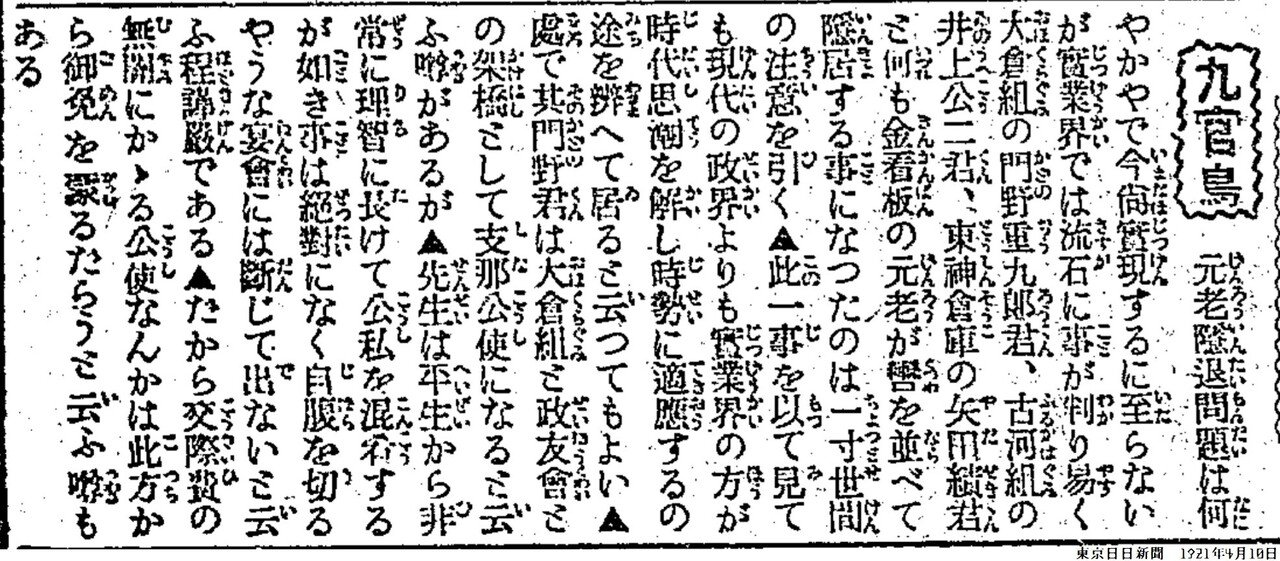 九官鳥
元老隱退問題は何
やかやで今尚實現するに至らない
が實業界では流石に事が判り易く
大倉組の門野重九郎君、古河組の
井上公二君、東神倉庫の矢田績君
と何も金看板の元老が轡を並べて
隱居する事になつたのは一寸世間
の注意を引く▲此一事を以て見て
も現代の政界よりも實業界の方が
時代思潮を解し時勢に適應するの
途を辨へて居ると云つてもよい▲
處で其門野君は大倉組と政友會と
の架橋として支那公使になると云
ふ噂があるが▲先生は平生から非
常に理智に長けて公私を混淆する
が如き事は絕對になく自腹を切る
やうな宴會には斷じて出ないと云
ふ程謹嚴である▲たから交際費の
無闇にかゝる公使なんかは此方か
ら御免を蒙るたらうと云ふ噂も
ある
東京日日新聞 1921年4月10日